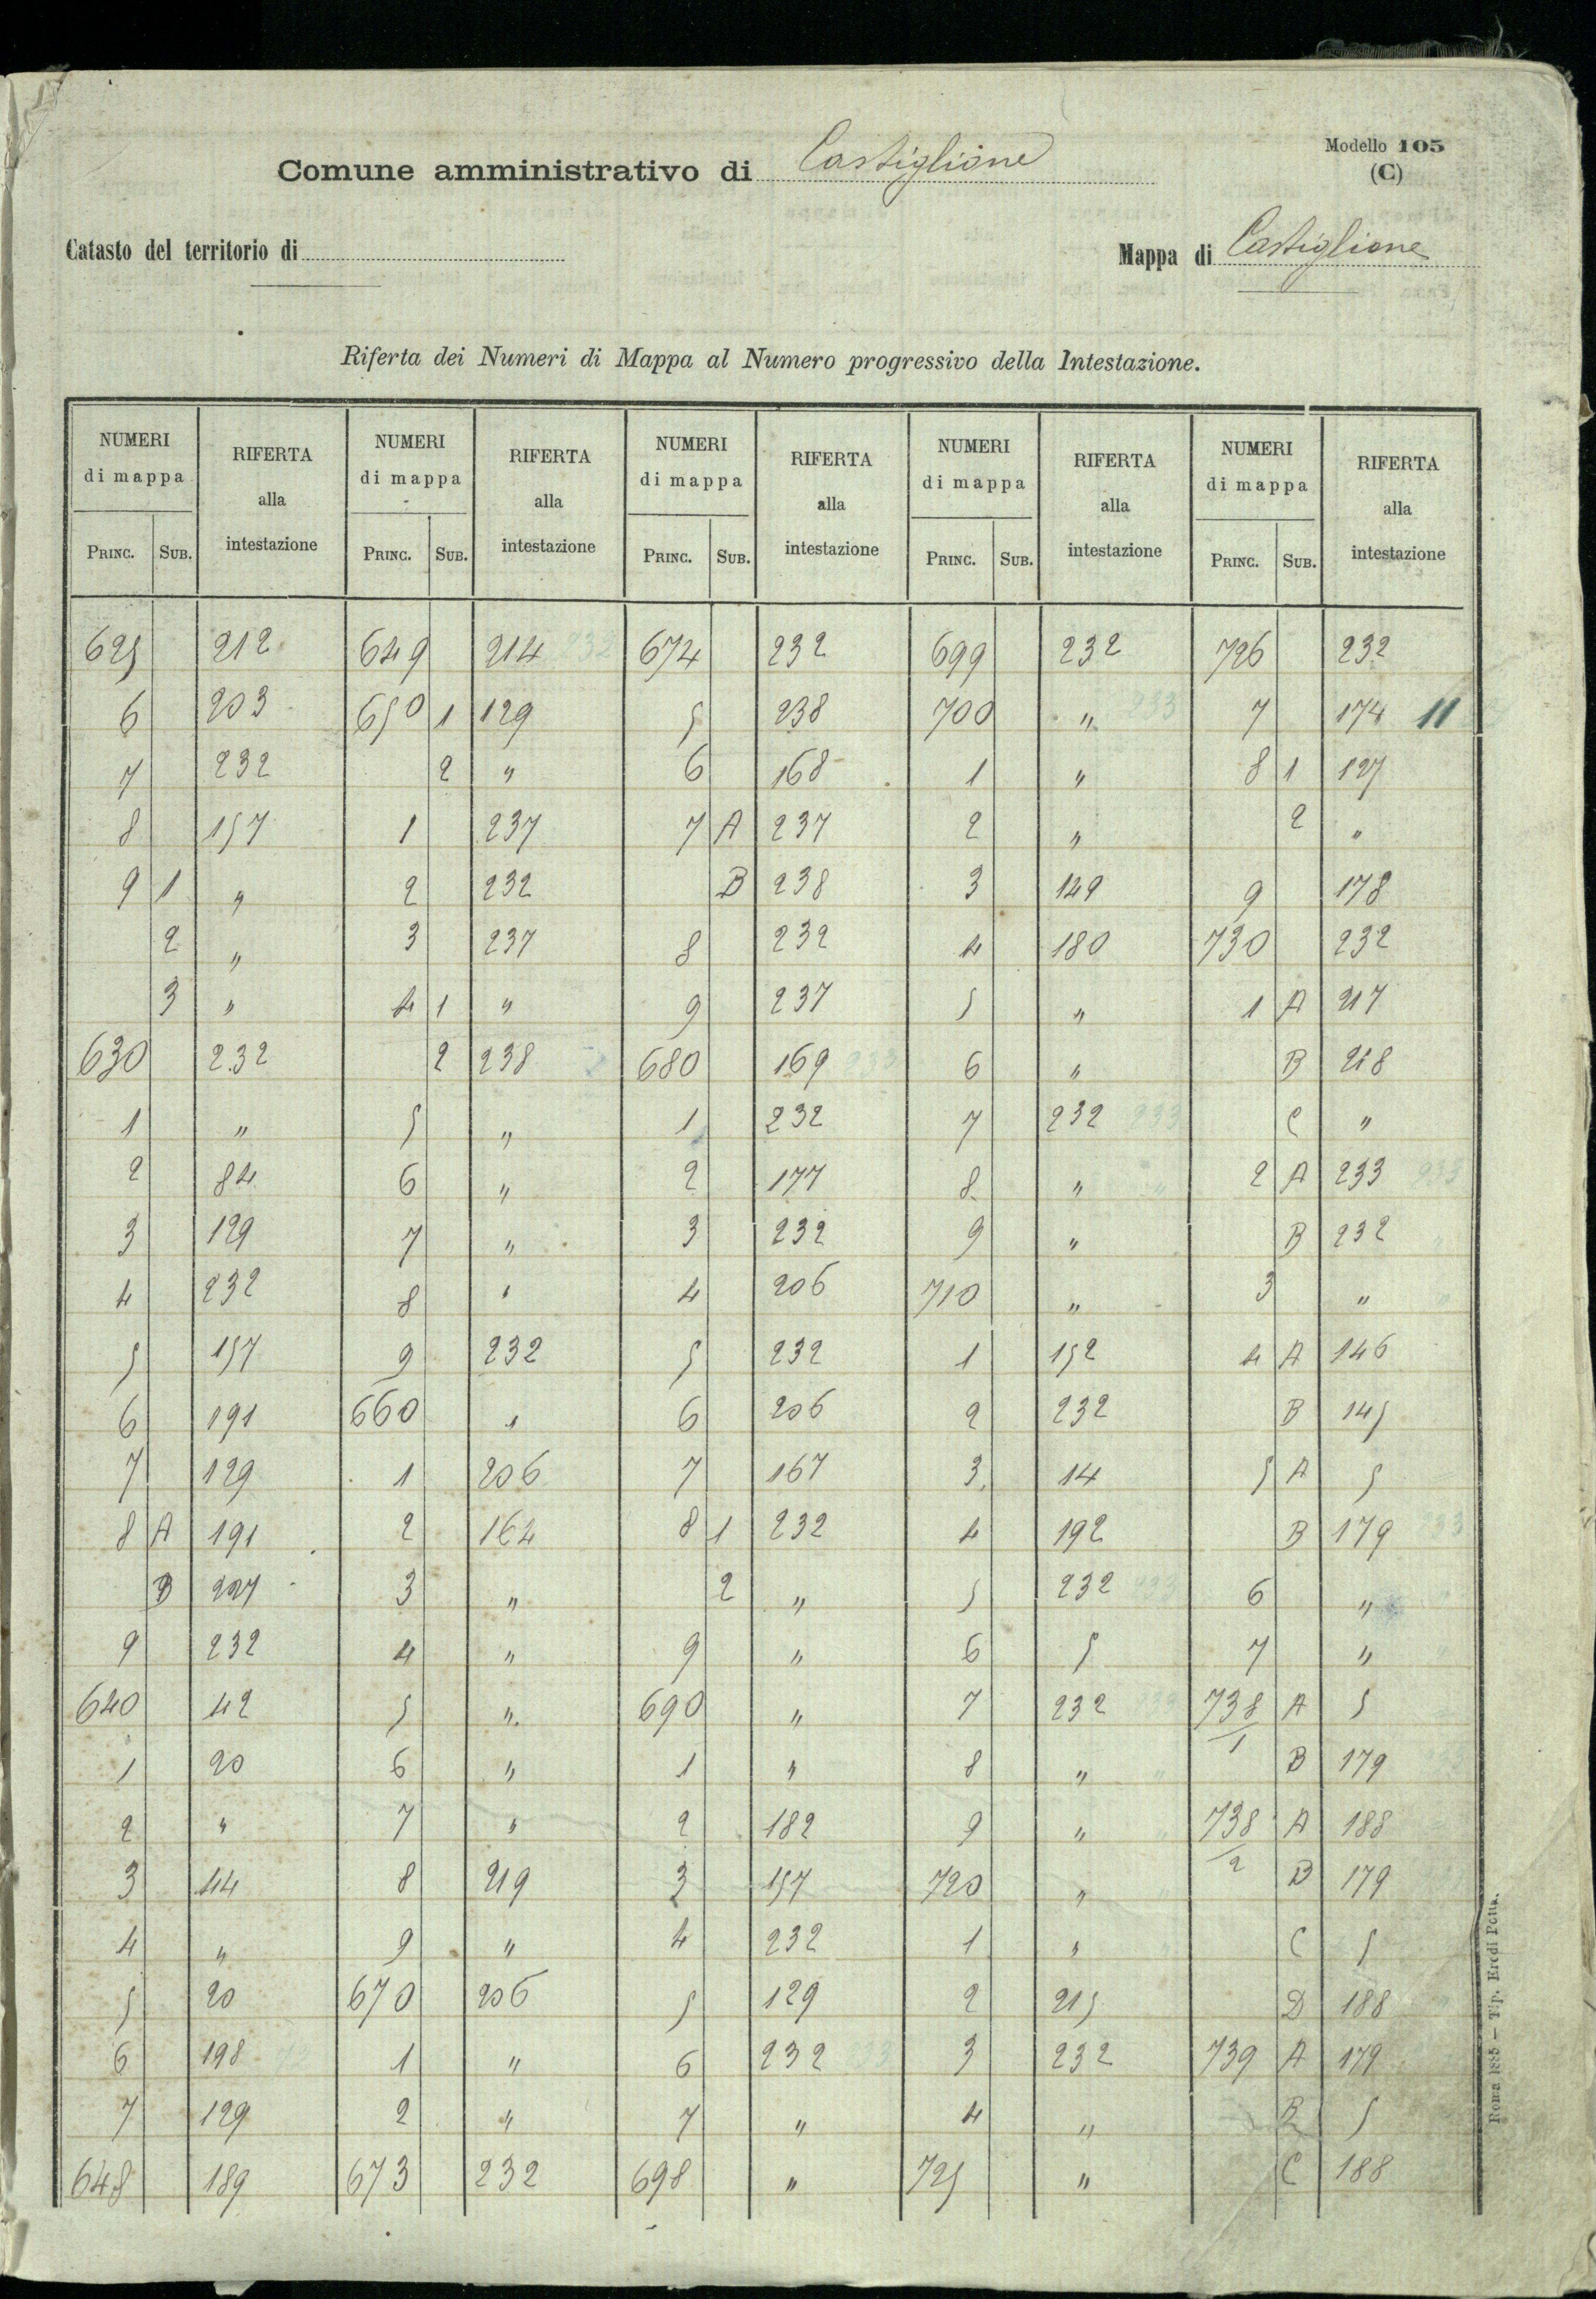 Modello 105
(C)
Comune amministrativo di Castiglione
Catasto del territorio di
Mappa di Castiglione
Riferta dei Numeri di Mappa al Numero progressivo della Intestazione.
NUMERI di mappa RIFERTA alla intestazione NUMERI di mappa RIFERTA alla intestazione NUMERI di mappa RIFERTA alla intestazione NUMERI di mappa RIFERTA alla intestazione NUMERI di mappa RIFERTA alla intestazione
PRINC. SUB. PRINC. SUB. PRINC. SUB. PRINC. SUB. PRINC. SUB.
625 212 649 214 232 674 232 699 232 726 232
6 203 650 1 129 5 238 700 " 233 7 174 11
7 232 2 " 6 168 1 " 8 1 127
8 157 1 237 7 A 237 2 " 2 "
9 1 " 2 232 B 238 3 149 9 178
2 " 3 237 8 232 4 180 730 232
3 " 4 1 " 9 237 5 " 1 A 217
630 232 2 238 680 169 233 6 " B 218
1 " 5 " 1 232 7 232 233 C "
2 84 6 " 2 177 8 " " 2 A 233 233
3 129 7 " 3 232 9 " B 232 "
4 232 8 " 4 206 710 " 3 " "
5 157 9 232 5 232 1 152 4 A 146
6 191 660 " 6 206 2 232 B 145
7 129 1 206 7 167 3 14 5 A 5
8 A 191 2 164 8 1 232 4 192 B 179 233
B 227 3 " 2 " 5 232 233 6 "
9 232 4 " 9 " 6 5 7 "
640 42 5 " 690 " 7 232 233 738/1 A 5
1 20 6 " 1 " 8 " " B 179
2 " 7 " 2 182 9 " 738/2 A 188
3 44 8 219 3 157 720 " B 179
4 " 9 " 4 232 1 " C 5
5 20 670 206 5 129 2 215 D 188
6 198 1 " 6 232 233 3 232 739 A 179
7 129 2 " 7 " 4 " B 5
648 189 673 232 698 " 725 " C 188
Roma 1885 — Tip. Eredi Botta.